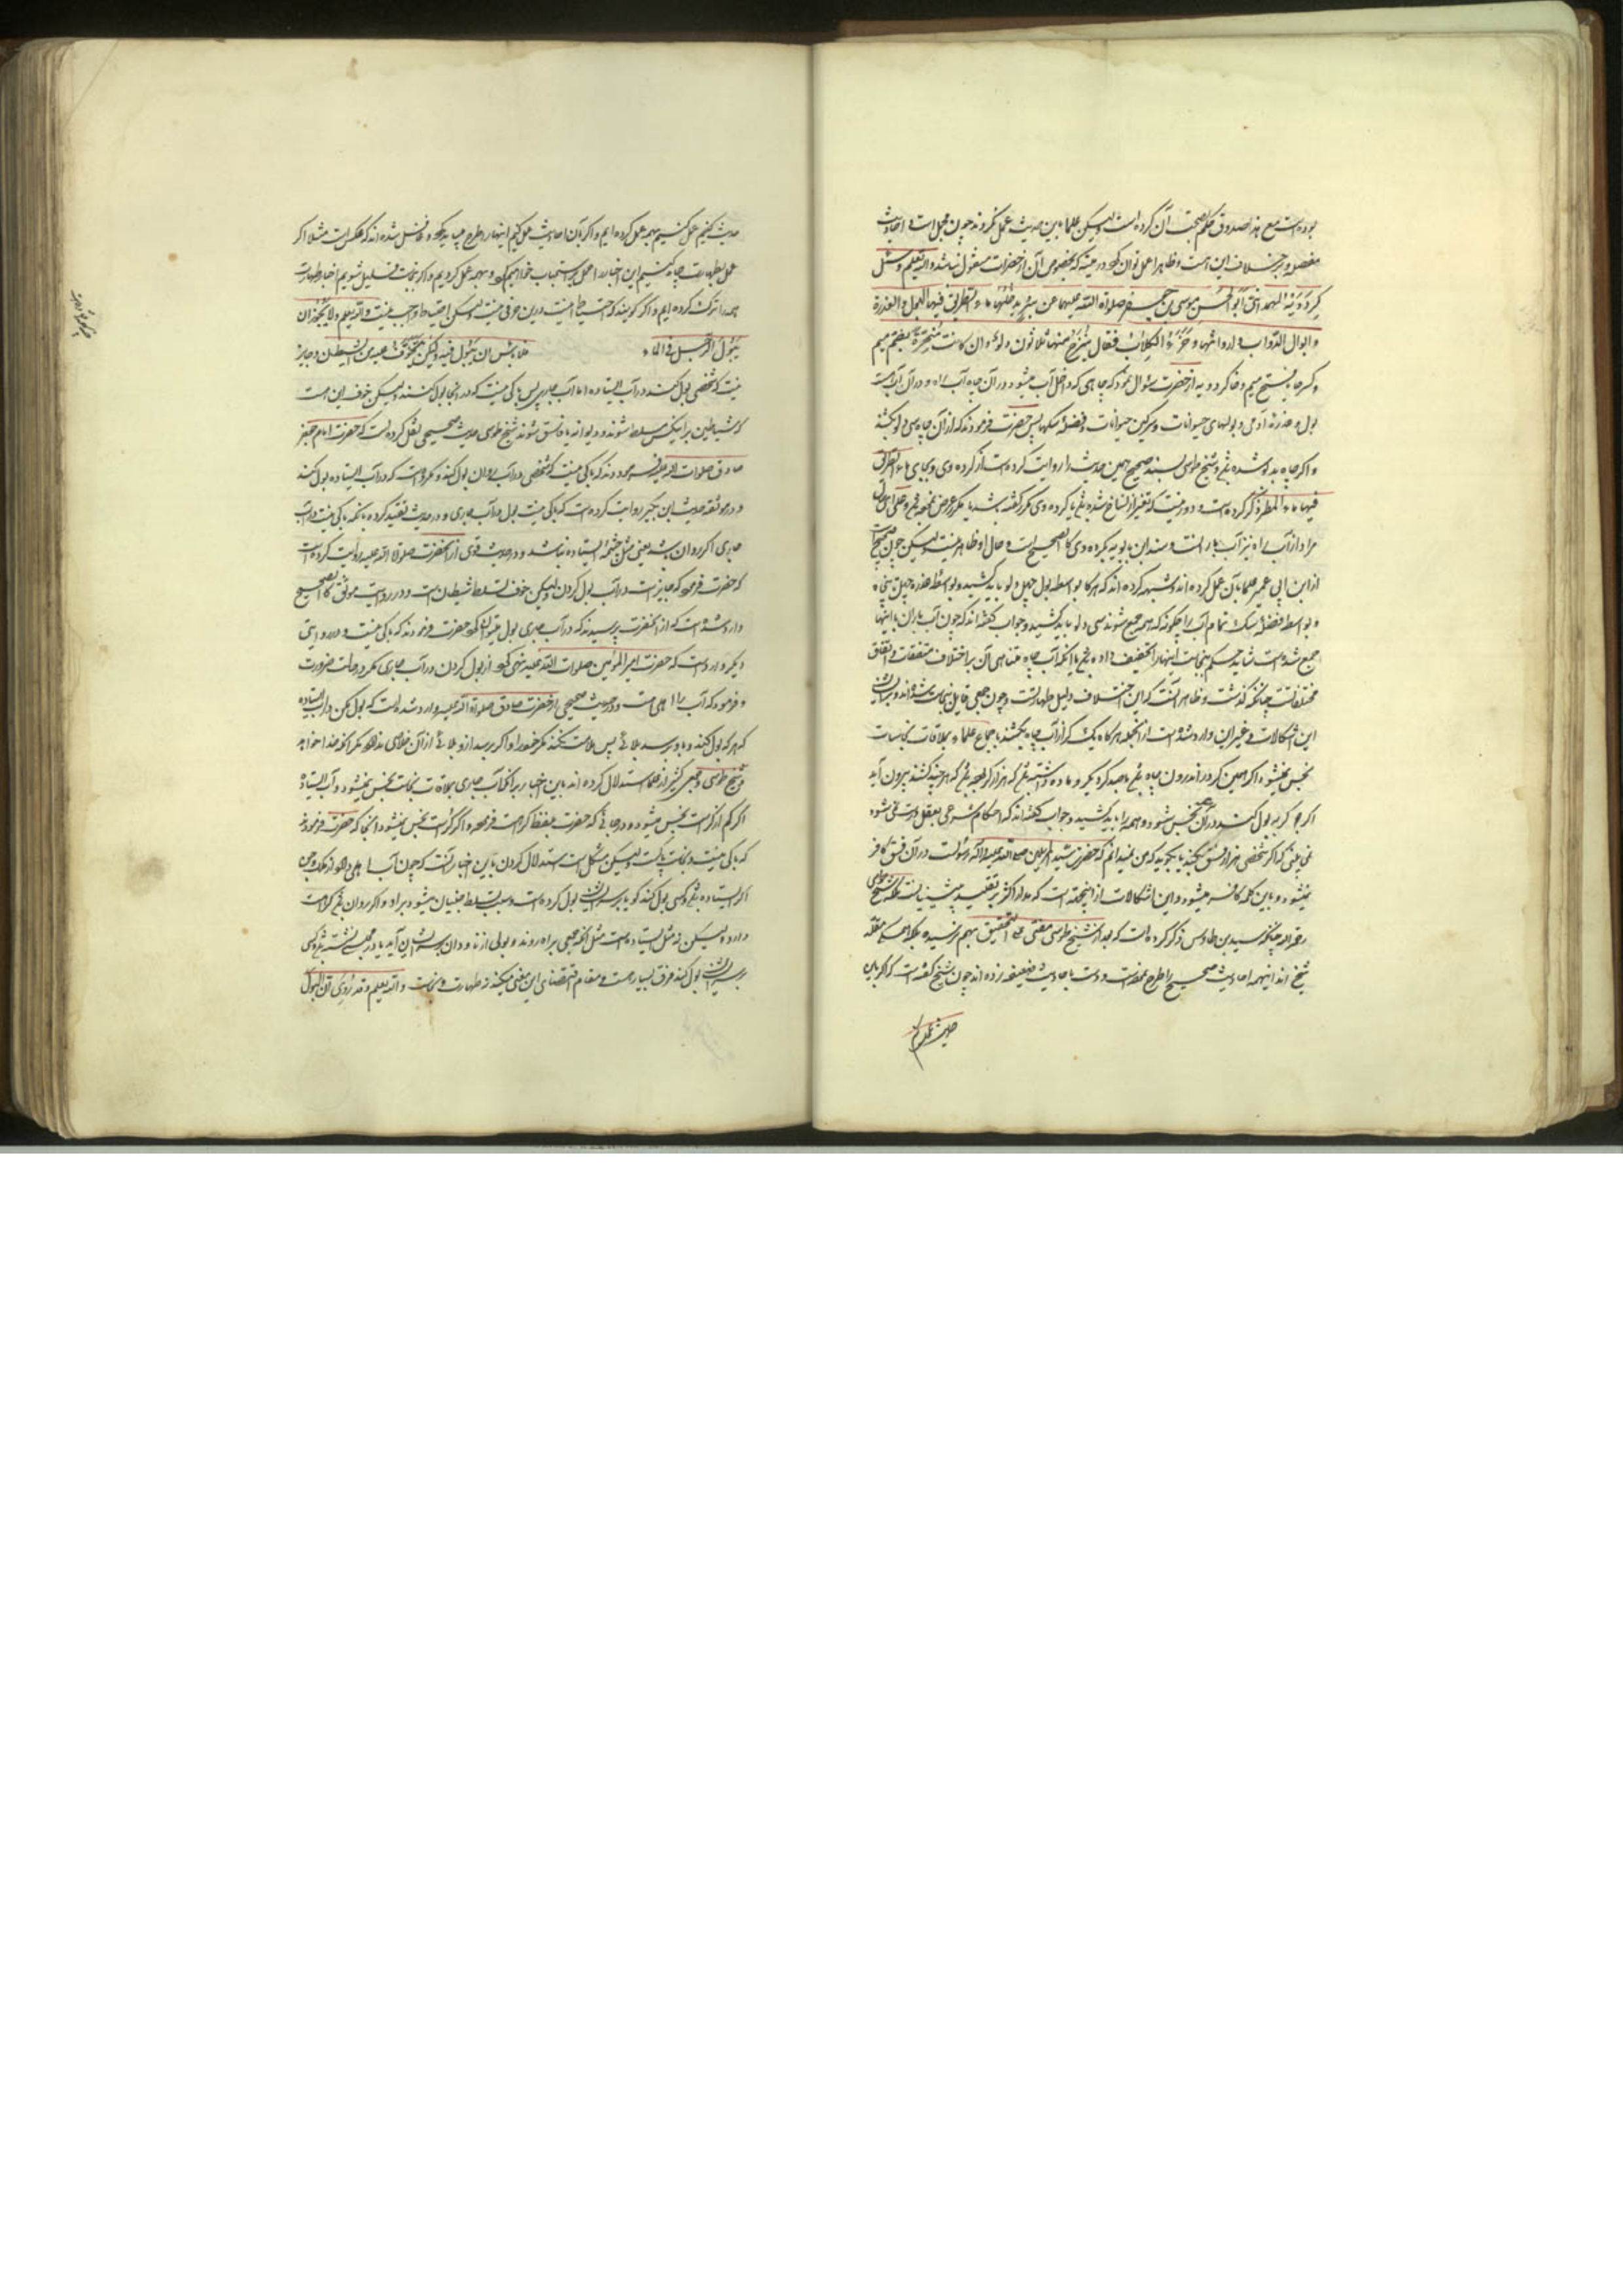 بوده است مع هذا صدوق حکم بصحت آن کرده است ولیکن علما باین حدیث عمل نکرده‌اند چون مجمل است و احادیث
مفصل بر خلاف این است و ظاهرا عمل توان کرد در چیزی که بخصوص آن از حضرات منقول نباشد والله تعلم وسئل
کردویه الهمدانی ابوالحسن موسی بن جعفر صلوات الله علیهما عن بئر یدخلها ماء الطریق فیها البول و العذرة
و ابوال الدواب و ارواثها و خرء الکلاب فقال ینزح منها ثلاثون دلوا و ان کانت مبخرة بضم میم
و کسر خا یا بفتح میم و خا کردویه از حضرت سؤال نمود که چاهی که داخل آب میشود در آن چاه آب راه و در آن آب است
بول و عذره آدمی و بولهای حیوانات و سرکین حیوانات و فضله سکها پس حضرت فرمودند که از آن چاه سی دلو بکشند
و اکر چاه بدبو شده باشد و شیخ طوسی بسند صحیح همین حدیث را روایت کرده است از کردوی و بجای ماء الطریق
فیها ماء المطر ذکر کرده است و دور نیست که تغییر از نساخ شده باشد یا کردوی مکرر کفته باشد
مراد از آب راه نیز آب باران است و سند ابن بابویه بکردوی کالصحیح است و حال او ظاهر نیست ولیکن چون صحیح است
از ابن ابی عمیر علما بآن عمل کرده‌اند و شبهه کرده‌اند که هرکاه بواسطه بول چهل دلو باید کشید و بواسطه عذره چهل پنجاه
و بواسطه فضله سک تمام آب را چکونه که همه جمع شوند سی دلو باید کشید و جواب کفته‌اند که چون آب باران با اینها
جمع شده است شاید حکم نجاست اینها را تخفیف داده باشد با آنکه آب چاه بناهای آن بر اختلاف متفقات و اتفاق
مختلفات است چنانکه کذشت و ظاهر آنست که این اختلاف دلیل طهارتست و چون جمعی قایل بنجاست شده‌اند و برایشان
این اشکالات و غیر این وارد شده است از آنجمله هرکاه یک کر از آب چاه بکشند باجماع علماء بملاقات نجاسات
نجس نمیشود و اکر همین کر در اندرون چاه باشد با صد کر دیکر و ماده داشته باشد که هزار کر باشد که هرچند کشند بیرون آید
اکر بچه کربه بول کند در آن نجس شود و همه را باید کشید و جواب کفته‌اند که احکام شرعی بعقل درست نمی‌شود
نمی‌بینی که اکر شخصی هزار فسق بکند تا بکوید که من نمیدانم که حضرت سید المرسلین صلی الله علیه و اله رسولست در آن فسق کافر
نمیشود و باین کلمه کافر میشود و این اشکالات از اینجهت است که مدار اکثر بر تقلید پیشینیان است بلکه شیخ طوسی
رحمه الله چنانکه سید بن طاوس ذکر کرده است که بعد از شیخ طوسی مفتی علی التحقیق بهم نرسیده بلکه همه مقلد
شیخ‌اند اینهمه احادیث صحیح را طرح نموده است و دست باحادیث ضعیفه زده‌اند چون شیخ کفته است که اکر باین
حدیث عمل کنیم
حدیث کنیم عمل کنیم بهمه عمل کرده‌ایم و اکر بآن احادیث عمل کنیم اینها را طرح میباید کرد و غافل شده‌اند که بعکس است مثلا اکر
عمل بطهارت چاه کنیم این اخبار را حمل بر استحباب خواهیم کرد و بهمه عمل کردیم و اکر بنجاست قایل شویم اخبار طهارت
همه را ترک کرده‌ایم و اکر کویند که احتیاط اینست درین حرفی نیست لیکن احتیاط واجب نیست والله تعلم ولا یجوز ان
یبول الرجل فی الماء فلا باس ان یبول فیه ولکن یتخوف علیه من الشیطان و جایز
نیست که شخصی بول کند در آب ایستاده اما آب جاری پس باکی نیست که در آنجا بول کنند ولیکن خوف این است
که شیاطین بر اینکس مسلط شوند و دیوانه یا فاسق شوند شیخ طوسی حدیث صحیحی نقل کرده است که حضرت امام جعفر
صادق صلوات الله علیه فرمودند که باکی نیست که شخصی در آب روان بول کند و مکروه است که در آب ایستاده بول کند
و در موثقه حدیث ابن بکیر روایت کرده است که باکی نیست بول در آب جاری و در حدیث تقیید کرده بآنکه باکی نیست در آب
جاری اکر روان باشد یعنی مثل چشمه ایستاده نباشد و در حدیث قوی از آنحضرت صلوات الله علیه روایت کرده است
که حضرت فرمود که جایز است در آب بول کردن ولیکن خوف تسلط شیطان است و در روایت موثق کالصحیح
وارد شده است که از آنحضرت پرسیدند که در آب جاری بول میتوان کرد حضرت فرمودند که باکی نیست و در روایتی
دیکر وارد است که حضرت امیرالمؤمنین صلوات الله علیه نهی کرد از بول کردن در آب جاری مکر در حالت ضرورت
و فرمود که آب را اهلی هست و در حدیث صحیحی از حضرت صادق صلوات الله علیه وارد شده است که بول مکن در آب ایستاده
که هر که بول کند و باو برسد بلائی پس ملامت نکند مکر خود را و اکر برسد او را بلائی از آن خلاصی ندهد مکر آنکه خدا خواهد
و شیخ طوسی و جمعی کثیر از علما استدلال کرده‌اند باین اخبار بر آنکه آب جاری بملاقات نجاست نجس نمیشود و آب ایستاده
اکر کم از کر است نجس میشود و در جائی که حضرت بلفظ کراهت فرموده و اکر کر است نجس نمیشود و آنجا که حضرت فرمودند
که باکی نیست و نجاست پاکست ولیکن مشکل است استدلال کردن باین اخبار آنست که چون آب را اهلی دارد از ملک و جن
اکر ایستاده باشد و کسی بول کند کویا بر سر ایشان بول کرده است و سبب تسلط جنیان میشود بر او و اکر روان باشد کراهت
دارد ولیکن نه مثل ایستاده است مثل آنکه جمعی براه روند و بولی از ناودان بر سر ایشان آید یا در مجلسی نشسته باشند و کسی
بر سر ایشان بول کند فرق بسیار است و مقام اقتضای این معنی میکند نه طهارت و نجاست والله تعلم و قد روی ان البول